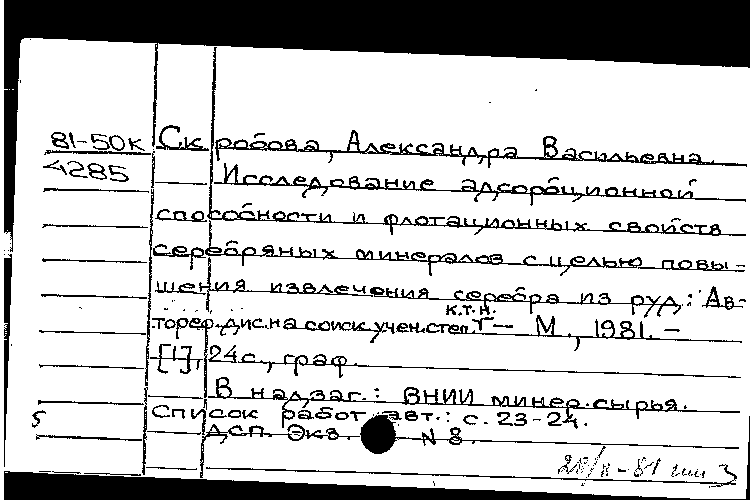 81-50к Скробова, Александра Васильевна.
4285 Исследование адсорбционной
способности и флотационных свойств
серебряных минералов с целью повы-
шения извлечения серебра из руд: Ав-
тореф. дис. на соиск. учен. степ. к.т.н. — М., 1981. -
[1], 24 с., граф.
В надзаг.: ВНИИ минер. сырья.
Список работ авт.: с. 23-24.
5 ДСП. Экз. N 8.